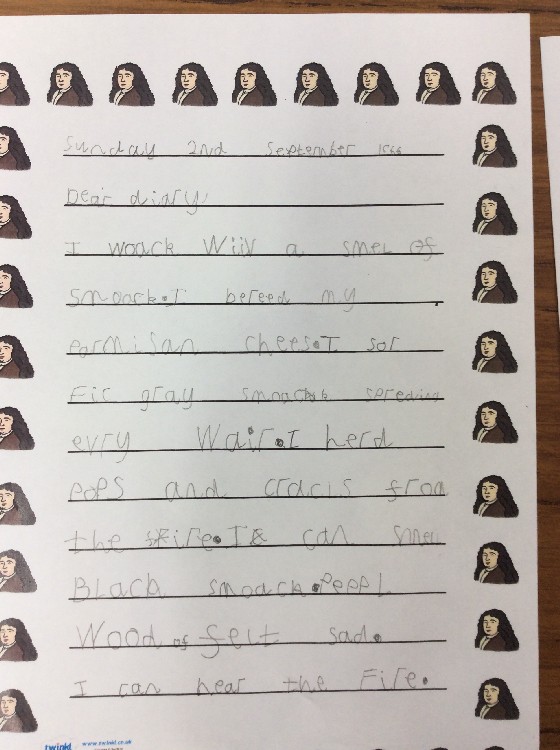 Sunday 2nd September 1666
Dear diary
I woack Wiiv a smel of
smoack.I bereed my
parmisan chees.I sor
Fic gray smoack spreding
evry Wair.I herd
pops and cracis from
the Fire.I can smell
Black smoack.Peepl
Wood of felt sad.
I can hear the Fire.
twinkl www.twinkl.co.uk